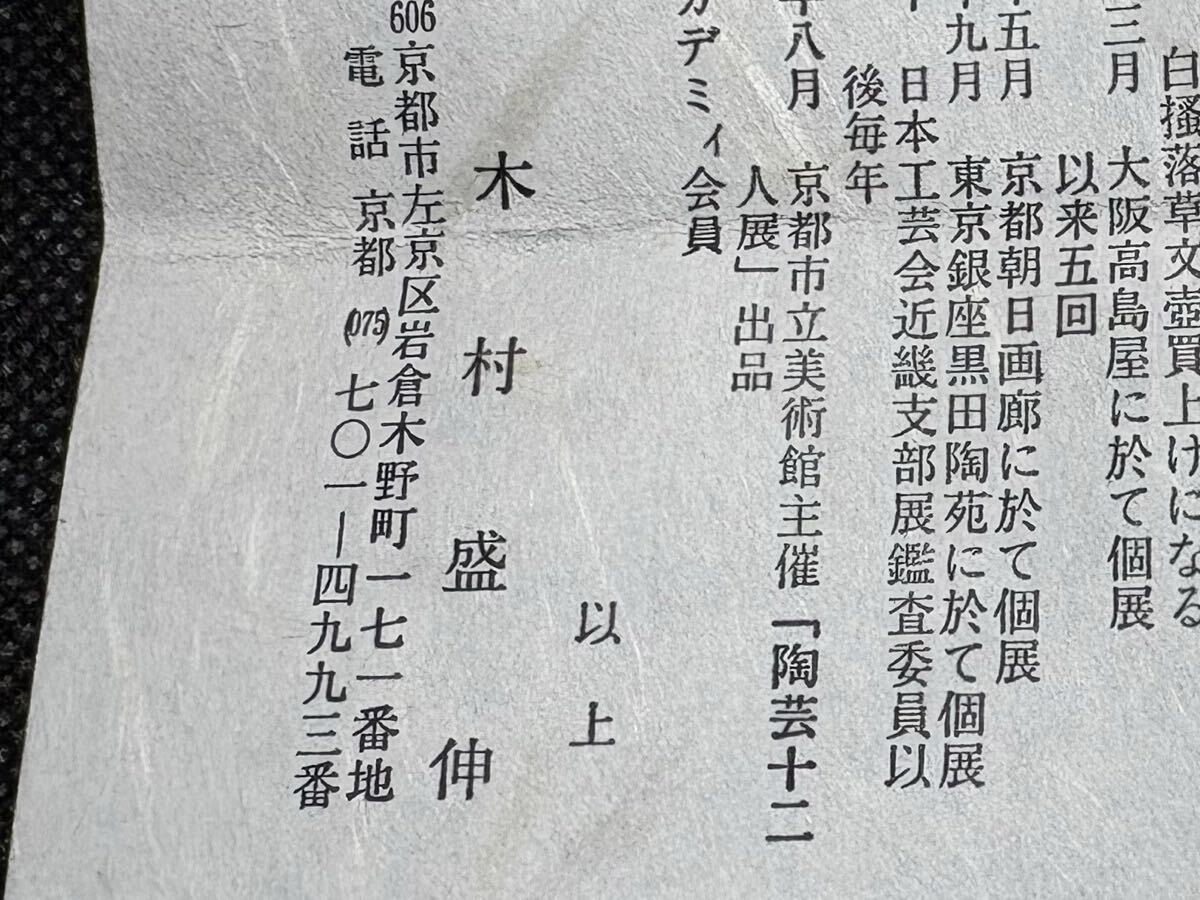 白掻落草文壺買上げになる
三月 大阪高島屋に於て個展
以来五回
五月 京都朝日画廊に於て個展
九月 東京銀座黒田陶苑に於て個展
日本工芸会近畿支部展鑑査委員以
後毎年
八月 京都市立美術館主催「陶芸十二
人展」出品
カデミィ会員
以上
木村盛伸
606京都市左京区岩倉木野町一七一番地
電話 京都 (075) 七〇一―四九九三番